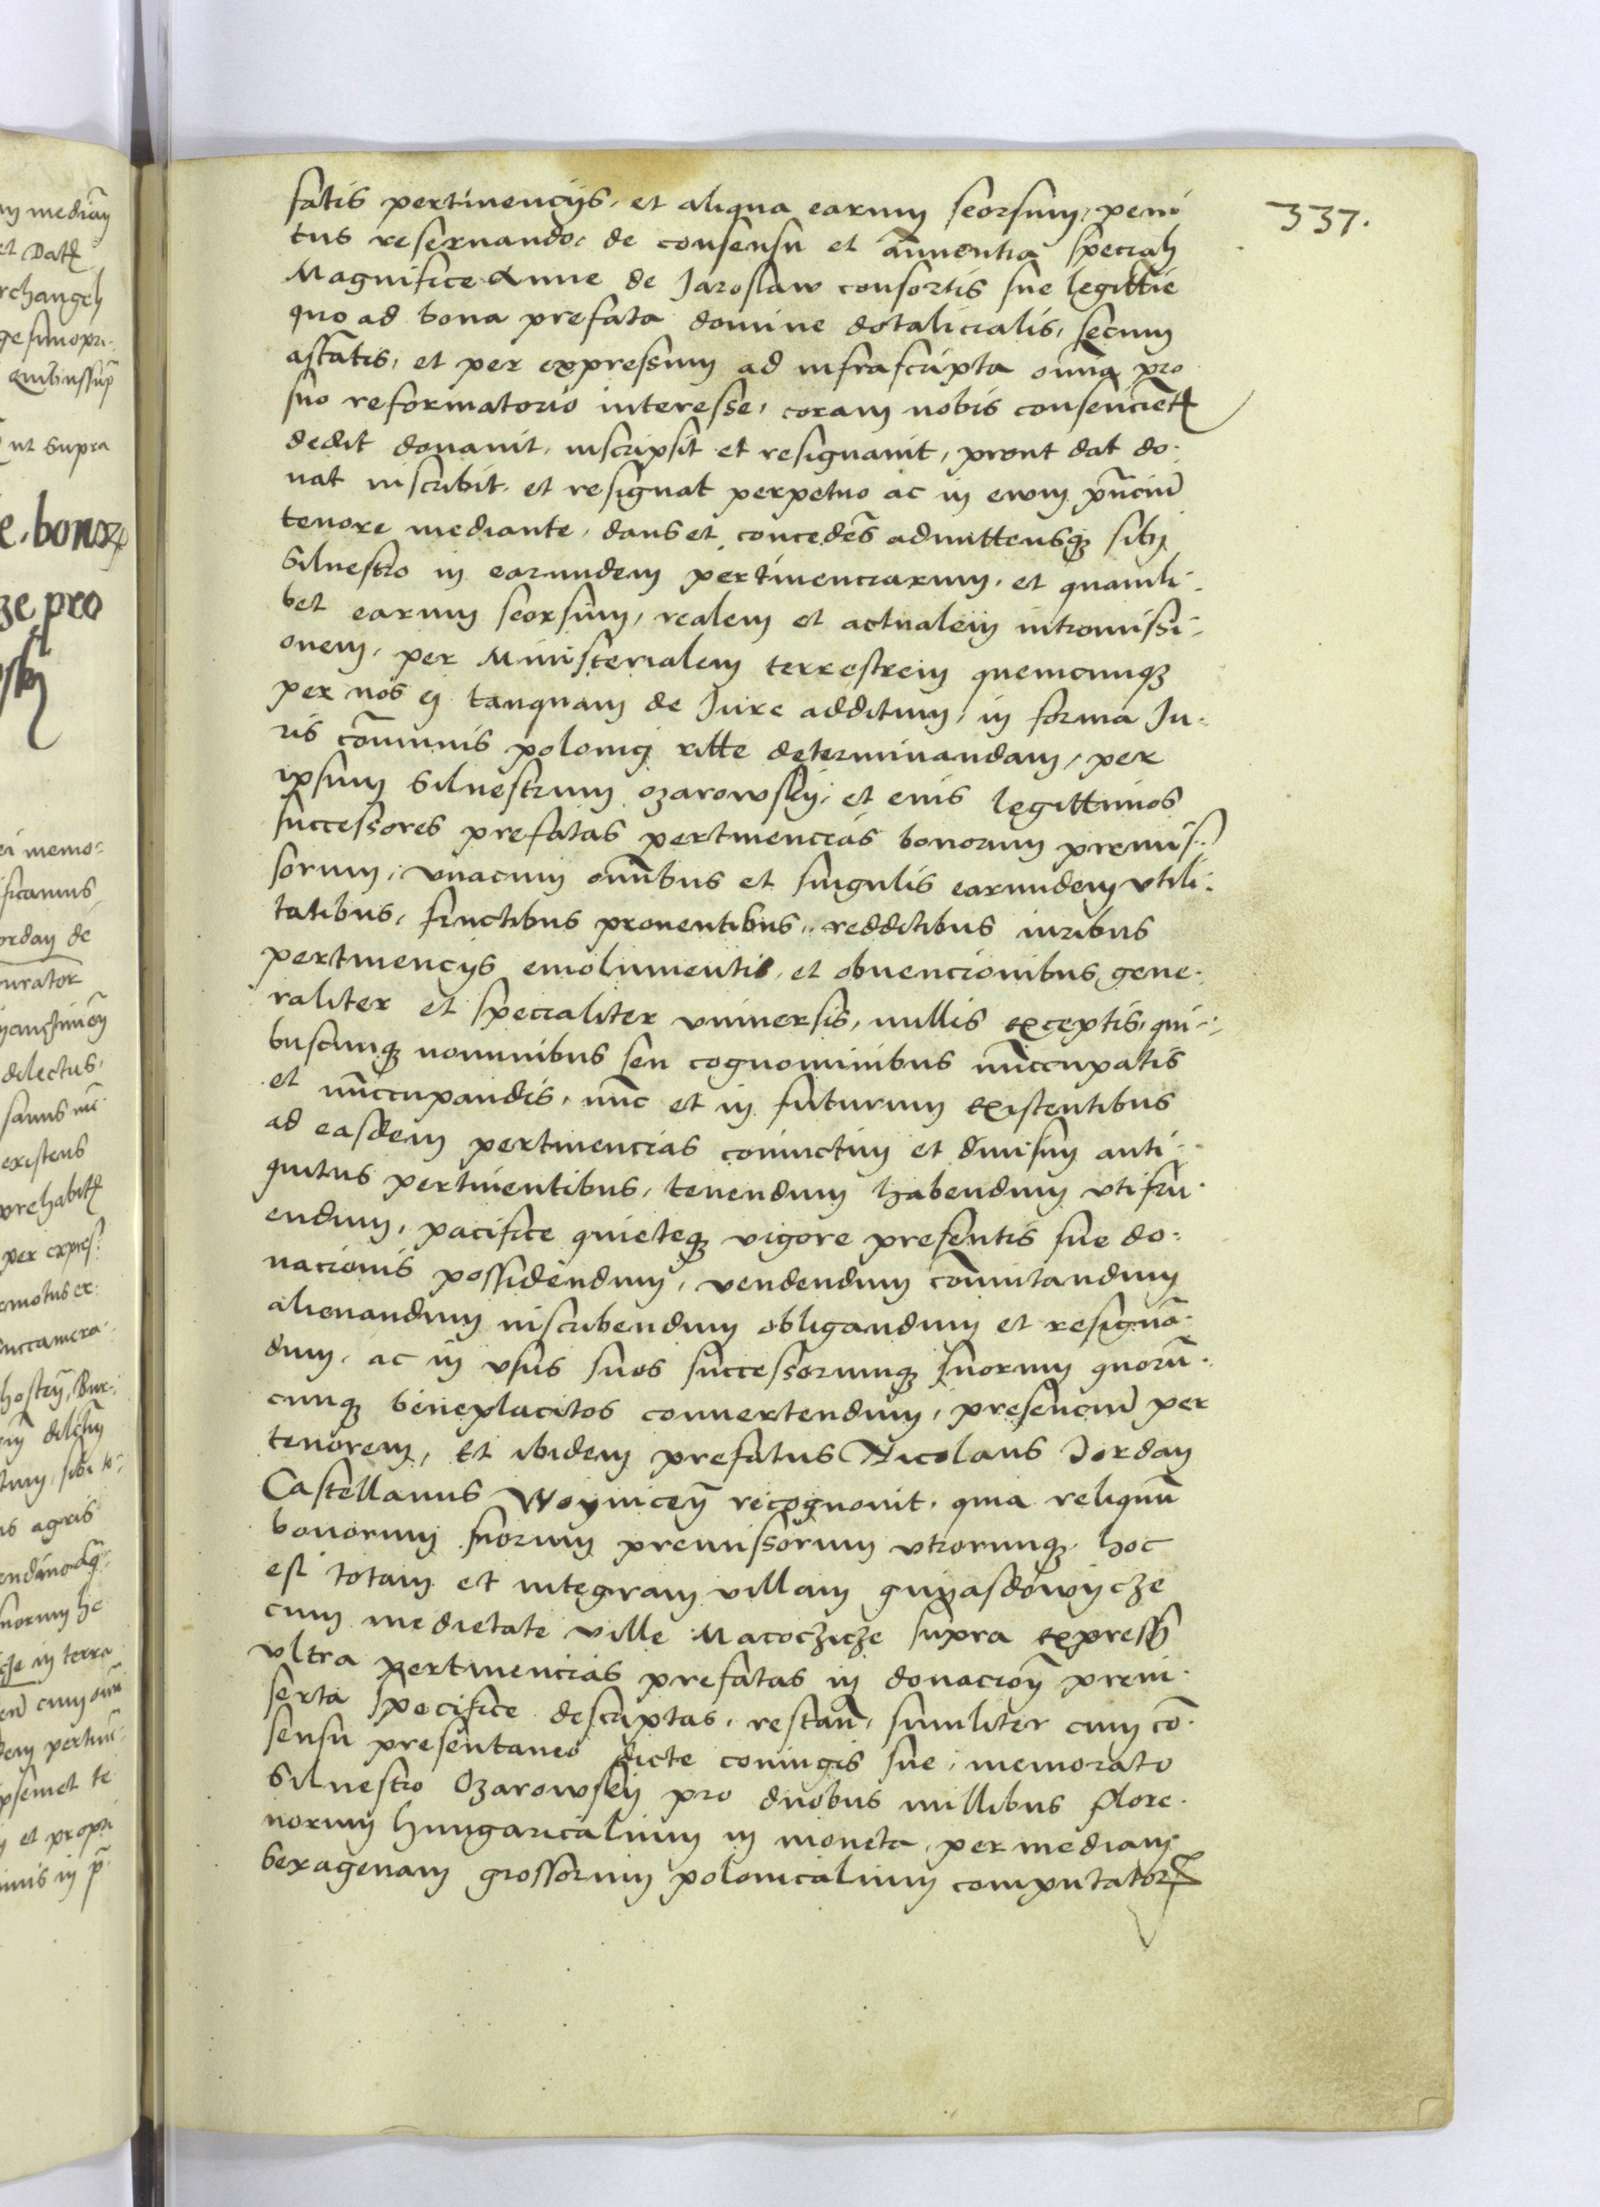 337.
fatis pertinencijs, et aliqua earum seorsum, peni
tus reservando, de consensu et añuentia speciali
Magnifice Anne de Jaroslaw consortis sue legittie
quo ad bona prefata domine dotalicialis, secum
astãtis, et per expressum ad infrascripta om̃ia pro
suo reformatorio interesse, coram nobis consencieñ
dedit donavit, inscripsit et resignavit, prout dat do-
nat inscribit, et resignat perpetuo ac in evum pñcium
tenore mediante, dans et concedẽs admittensq3 sibi
Silvestro in earundem pertinenciarum, et quamli-
bet earum seorsum, realem et actualem intromissi-
onem, per Ministerialem terrestrem quemcumq3
per nos ei tanquam de Jure additum, in forma Ju-
ris cõmunis polonici ritte determinandam, per
ipsum Silvestrum Ozarowskij, et eius legittimos
successores prefatas pertinencias bonorum premis-
sorum, unacum omnibus et singulis earundem utili-
tatibus, fructibus proventibus, redditibus iuribus
pertinencijs emolumentis, et obvencionibus gene-
raliter et specialiter universis, nullis exceptis, qui-
buscumq3 nominibus seu cognominibus nũccupatis
et nũccupandis, nũc et in futurum existentibus
ad easdem pertinencias coniunctim et divisim anti-
quitus pertinentibus, tenendum habendum utifru-
endum, pacifice quieteq3 vigore presentis sue do-
nacionis possidendum, vendendum cõmutandum
alienandum inscribendum obligandum et resignã-
dum, ac in usus suos successorumq3 suorum quorũ-
cumq3 beneplacitos convertendum, presencium per
tenorem, Et ibidem prefatus Nicolaus Jordan
Castellanus Woyniceñ recognovit, quia reliquũ
bonorum suorum premissorum utrorumq3 hoc
est totam et integram villam gnyasdowycze
cum medietate ville Macoczicze supra express̃
ultra pertinencias prefatas in donacioñ preni-
serta specifice descriptas, restañ, similiter cum cõ-
sensu presentaneo dicte coniugis sue, memorato
Silvestro Ozarowskij pro duobus millibus flore-
norum hungaricalium in moneta, per mediam
sexagenam grossorum polonicalium computatorꝝ